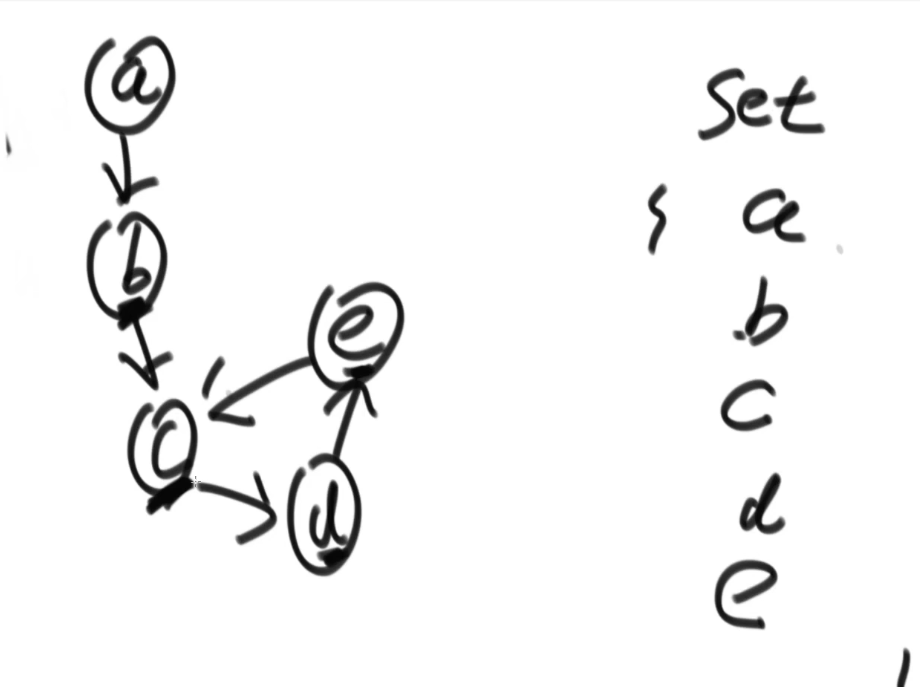 a
b
c
e
d
Set
{ a
b
c
d
e